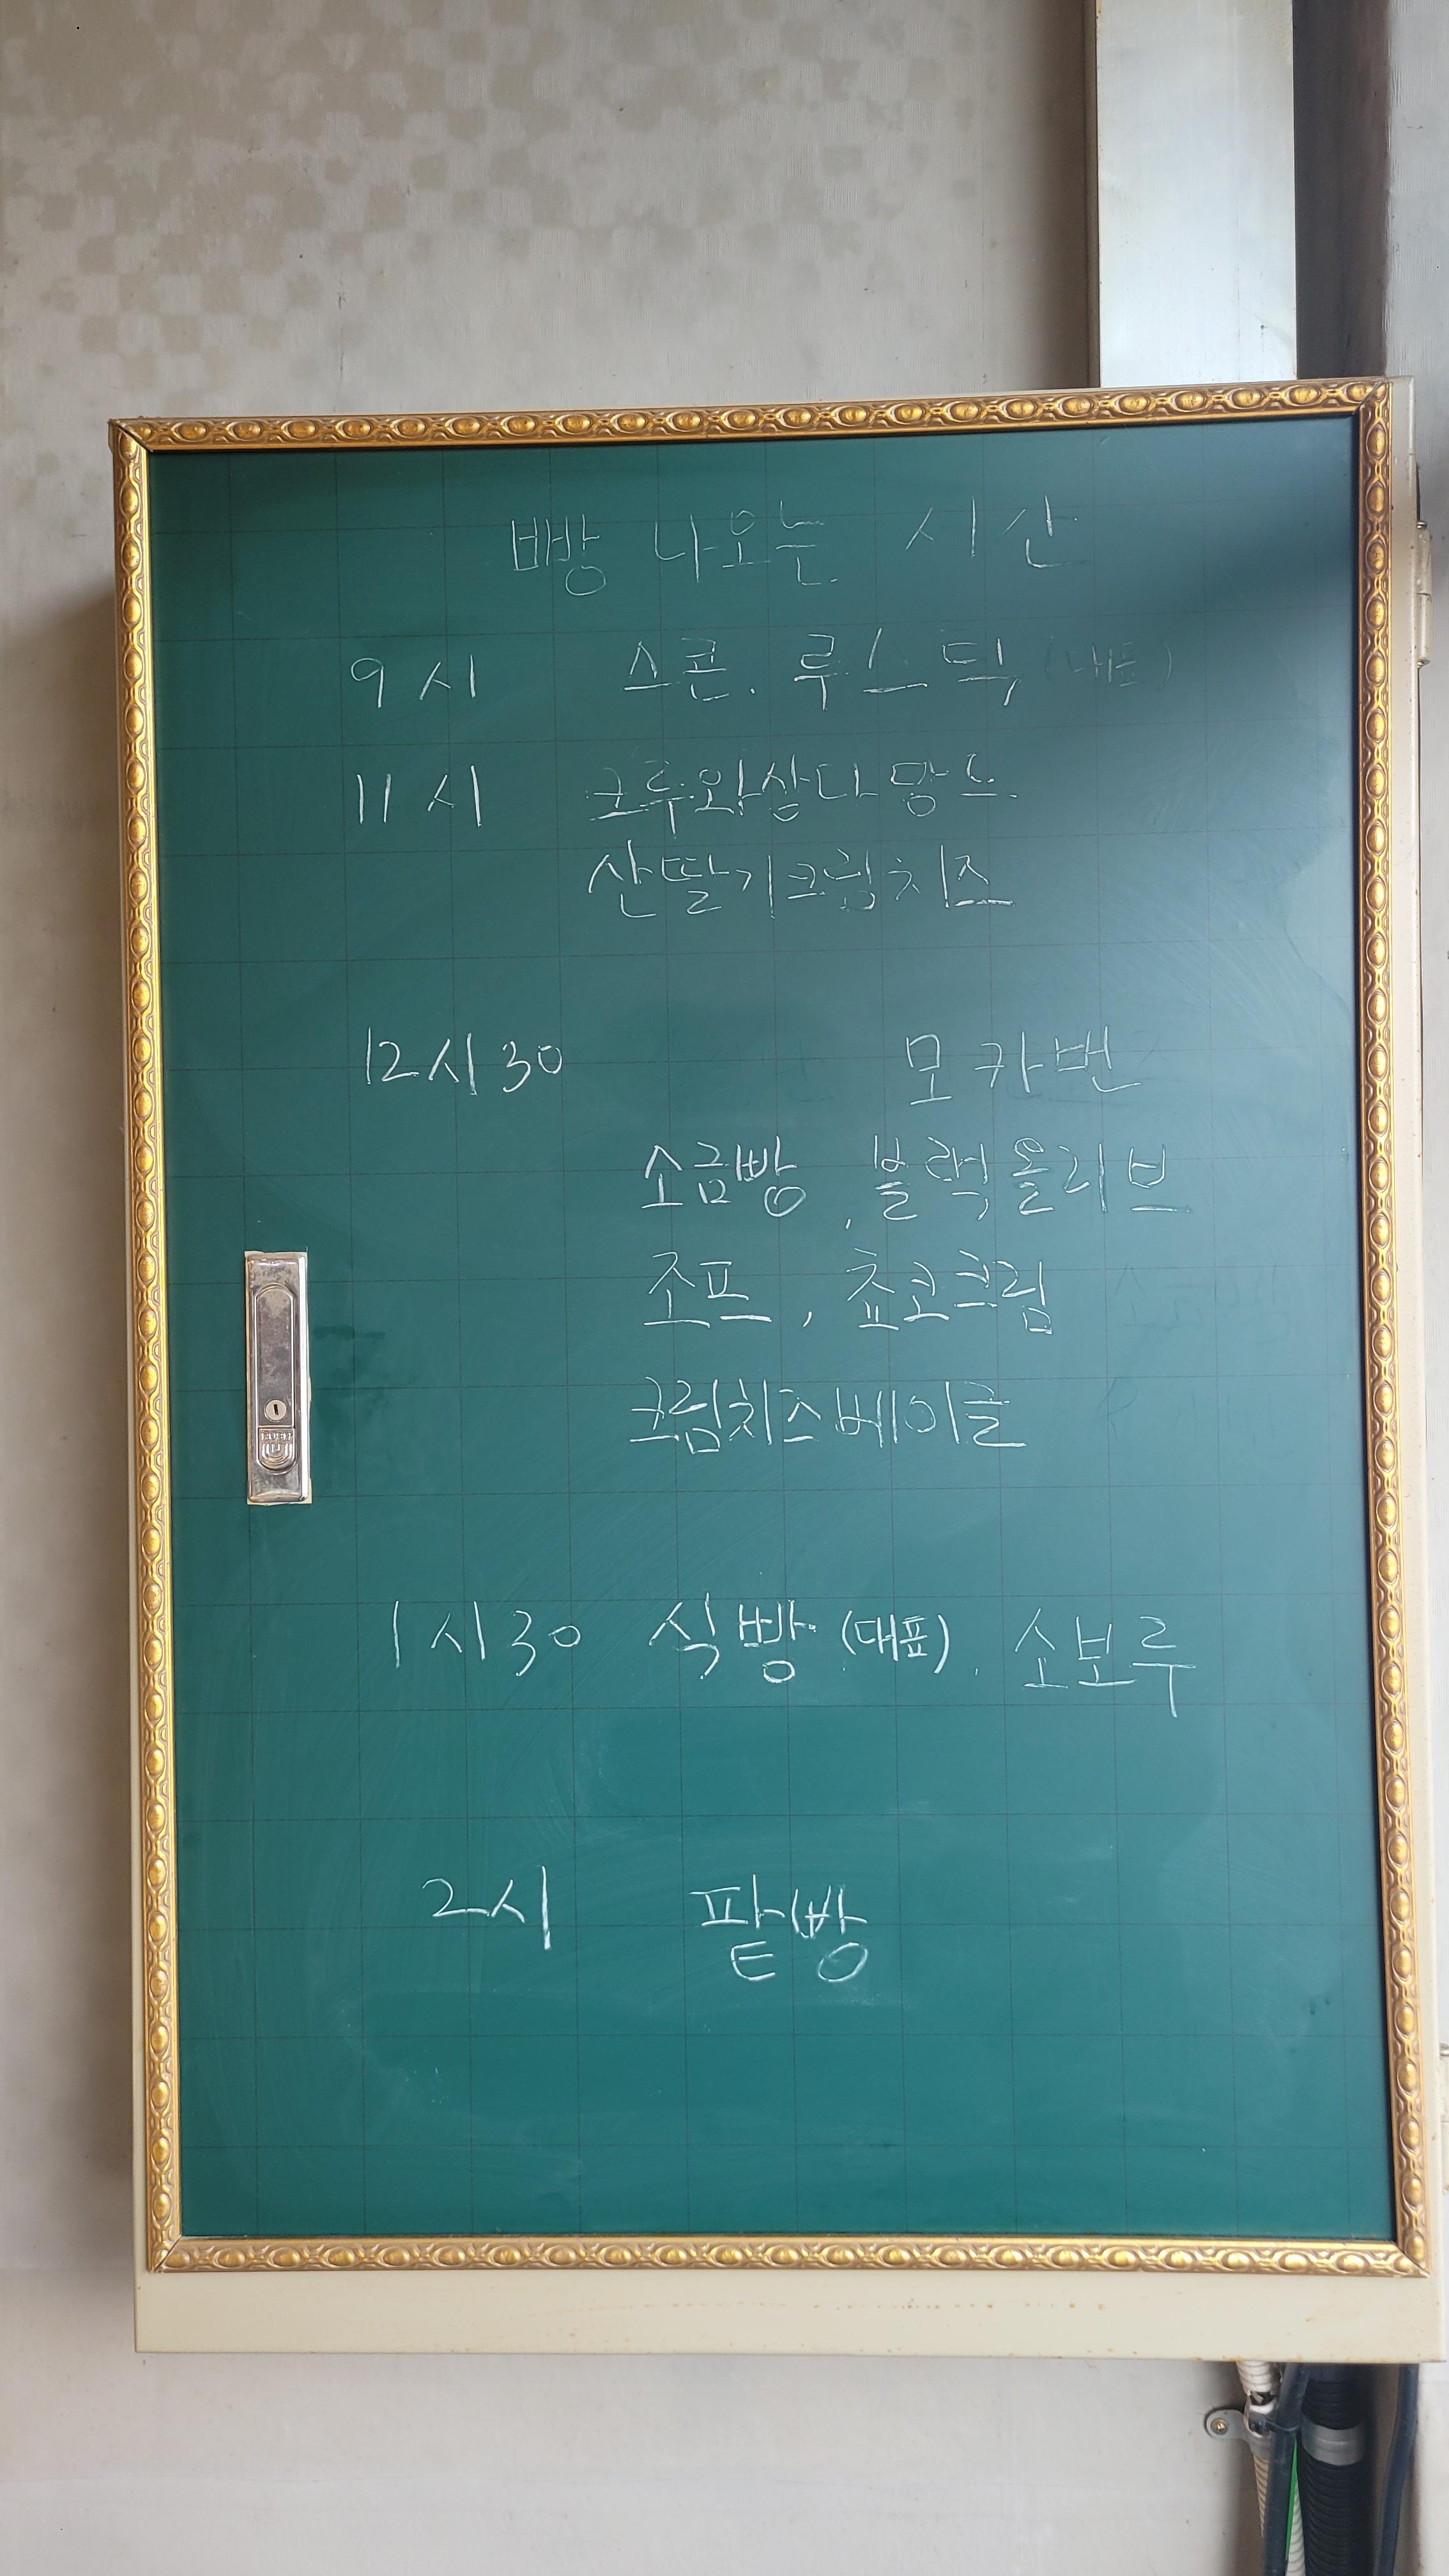 빵 나오는 시간
9시 스콘. 루스틱 (대표)
11시 크루와상다망드
산딸기크림치즈
12시30 모카번
소금빵, 블랙올리브
조프, 쵸코크림
크림치즈베이글
1시30 식빵 (대표). 소보루
2시 팥빵